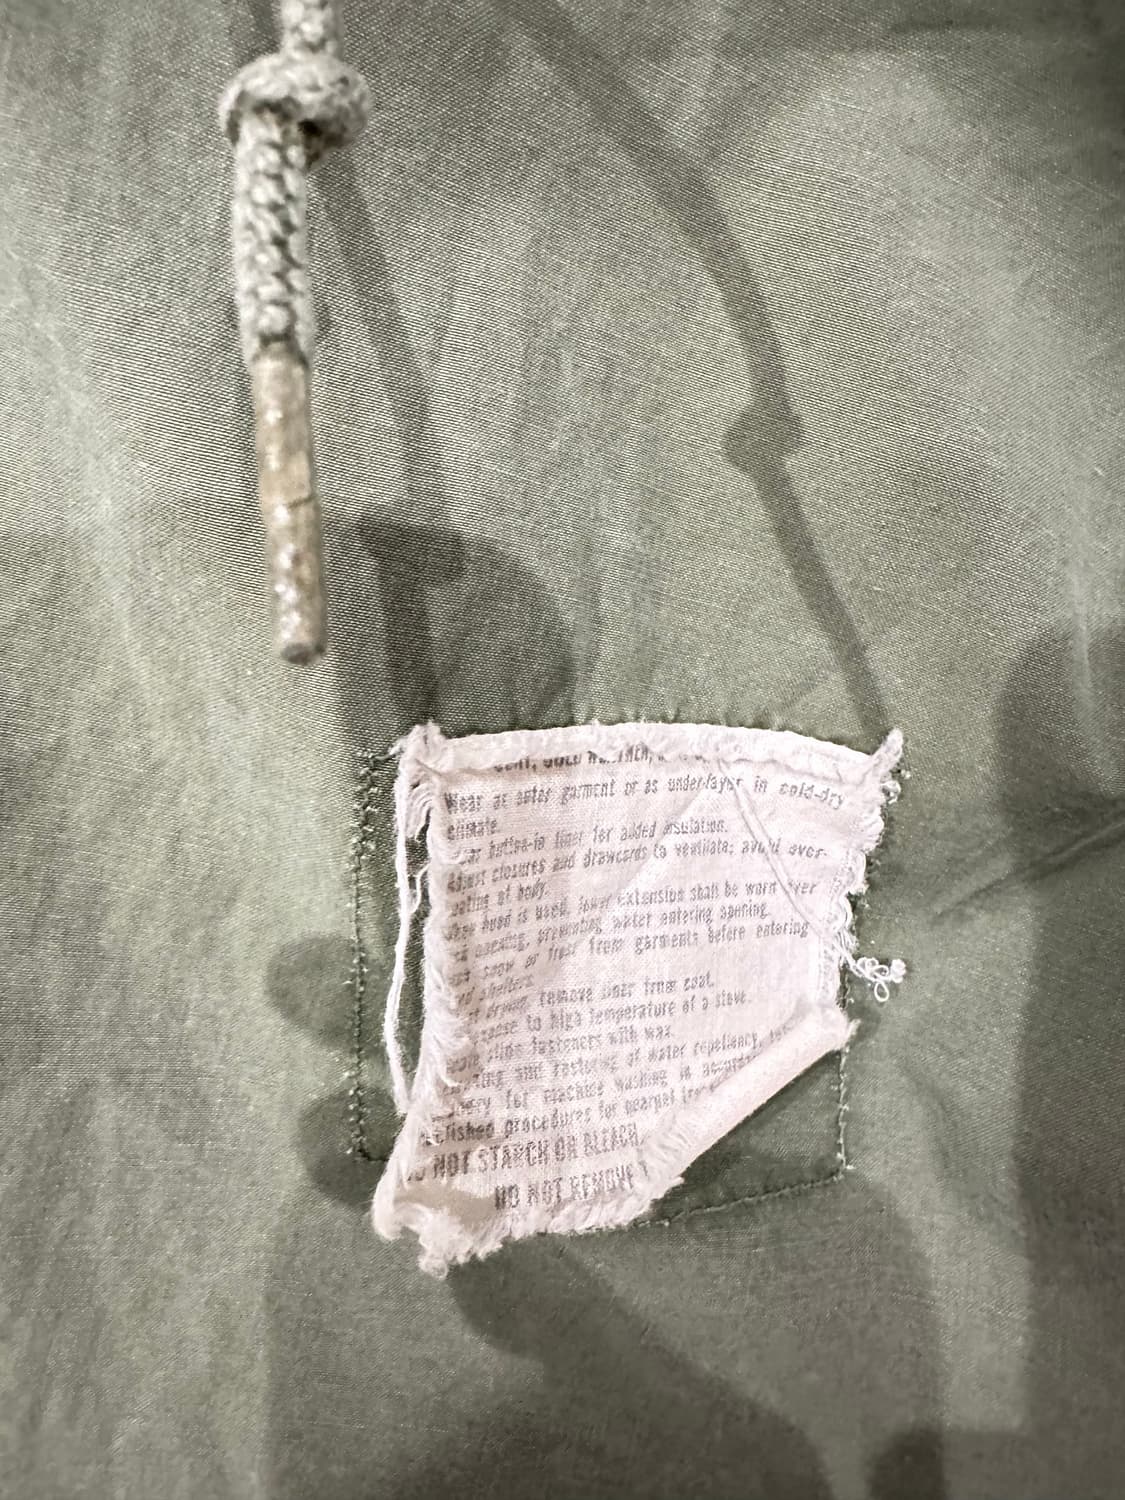 COAT, COLD WEATHER,
Wear as outer garment or as underlayer in cold-dry
climate.
button-in liner for added insulation.
Adjust closures and drawcords to ventilate; avoid over-
heating of body.
When hood is used, lower extension shall be worn over
opening, preventing water entering opening.
snow or frost from garments before entering
shelters.
drying, remove liner from coat.
expose to high temperature of a stove.
slide fasteners with wax.
and restoring of water repellency,
for machine washing in
published procedures for
DO NOT STARCH OR BLEACH
DO NOT REMOVE T